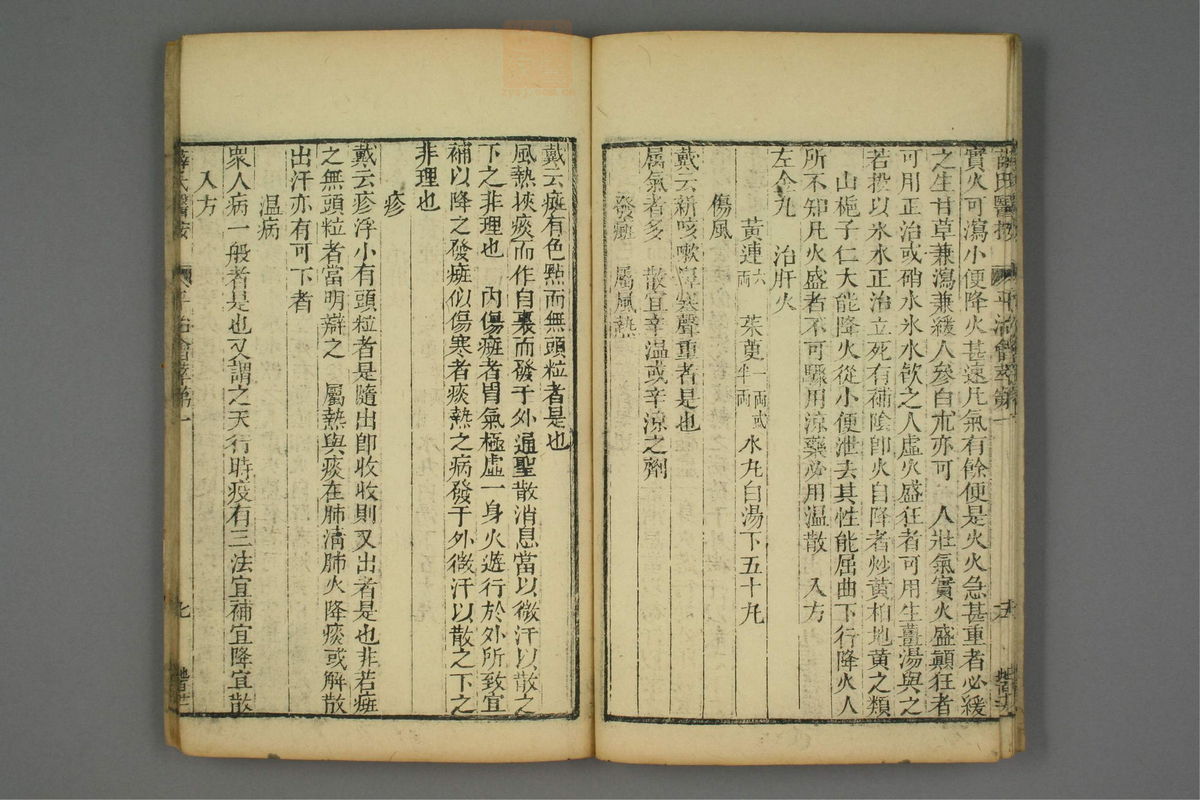 實火可瀉小便降火甚速凡氣有餘便是火火急甚重者必緩
之生甘草兼瀉兼緩人參白朮亦可 人壯氣實火盛顛狂者
可用正治或硝水氷水飲之人虛火盛狂者可用生薑湯與之
若投以氷水正治立死有補陰卽火自降者炒黃柏地黃之類
山梔子仁大能降火從小便泄去其性能屈曲下行降火人
所不知凡火盛者不可驟用涼藥必用温散 入方
左金丸 治肝火
黃連六兩 茱萸一兩或半兩 水丸白湯下五十丸
傷風
戴云新咳嗽鼻塞聲重者是也
屬氣者多 散宜辛温或辛涼之劑
發癍 屬風熱
戴云癍有色點而無頭粒者是也
風熱挾痰而作自裏而發于外通聖散消息當以微汗以散之
下之非理也 内傷癍者胃氣極虛一身火遊行於外所致宜
補以降之發癍似傷寒者痰熱之病發于外微汗以散之下之
非理也
疹
戴云疹浮小有頭粒者是隨出卽收收則又出者是也非若癍
之無頭粒者當明辯之 屬熱與痰在肺清肺火降痰或解散
出汗亦有可下者
温病
衆人病一般者是也又謂之天行時疫有三法宜補宜降宜散
入方
薛氏醫按 平治會萃第一